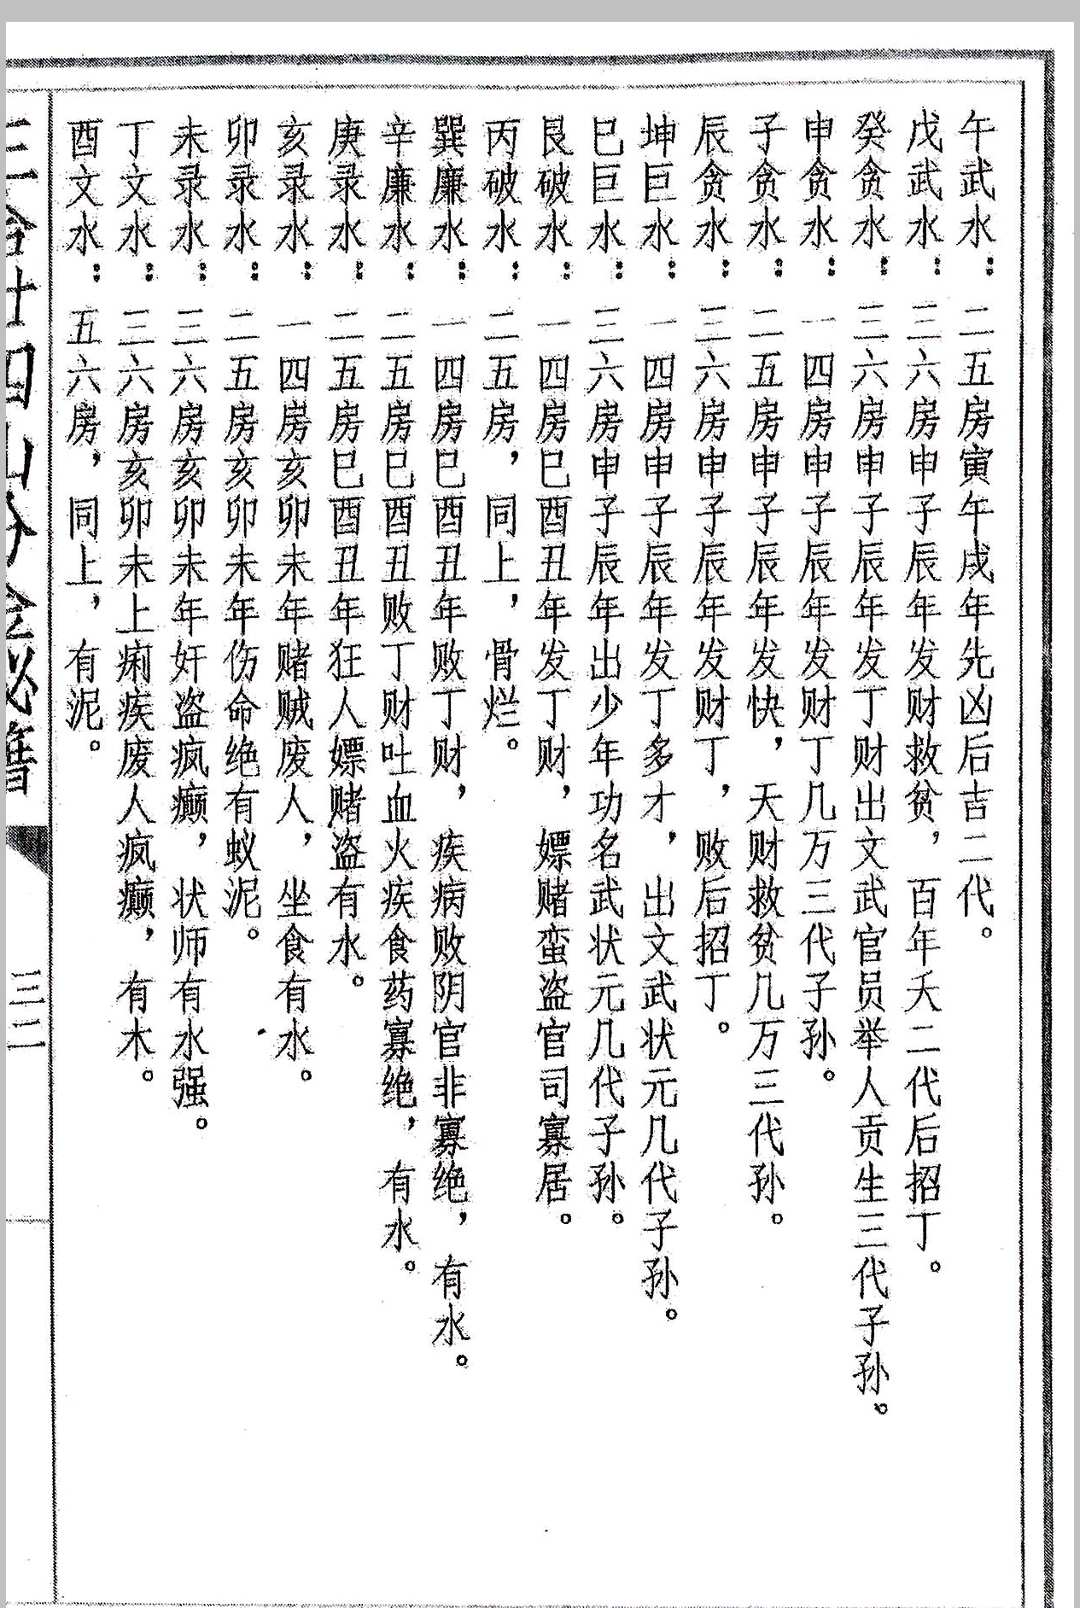 午武水：二五房寅午戌年先凶后吉二代。
戊武水：三六房申子辰年发财救贫，百年夭二代后招丁。
癸贪水：三六房申子辰年发丁财出文武官员举人贡生三代子孙。
申贪水：一四房申子辰年发财丁几万三代子孙。
子贪水：二五房申子辰年发快，天财救贫几万三代孙。
辰贪水：三六房申子辰年发财丁，败后招丁。
坤巨水：一四房申子辰年发丁多才，出文武状元几代子孙。
巳巨水：三六房申子辰年出少年功名武状元几代子孙。
艮破水：一四房巳酉丑年发丁财，嫖赌蛮盗官司寡居。
丙破水：二五房，同上，骨烂。
巽廉水：一四房巳酉丑年败丁财，疾病败阴官非寡绝，有水。
辛廉水：二五房巳酉丑败丁财吐血火疾食药寡绝，有水。
庚录水：二五房巳酉丑年狂人嫖赌盗有水。
亥录水：一四房亥卯未年赌贼废人，坐食有水。
卯录水：二五房亥卯未年伤命绝有蚁泥。
未录水：三六房亥卯未年奸盗疯癫，状师有水强。
丁文水：三六房亥卯未上痢疾废人疯癫，有木。
酉文水：五六房，同上，有泥。
三合廿四山分金秘籍
三二